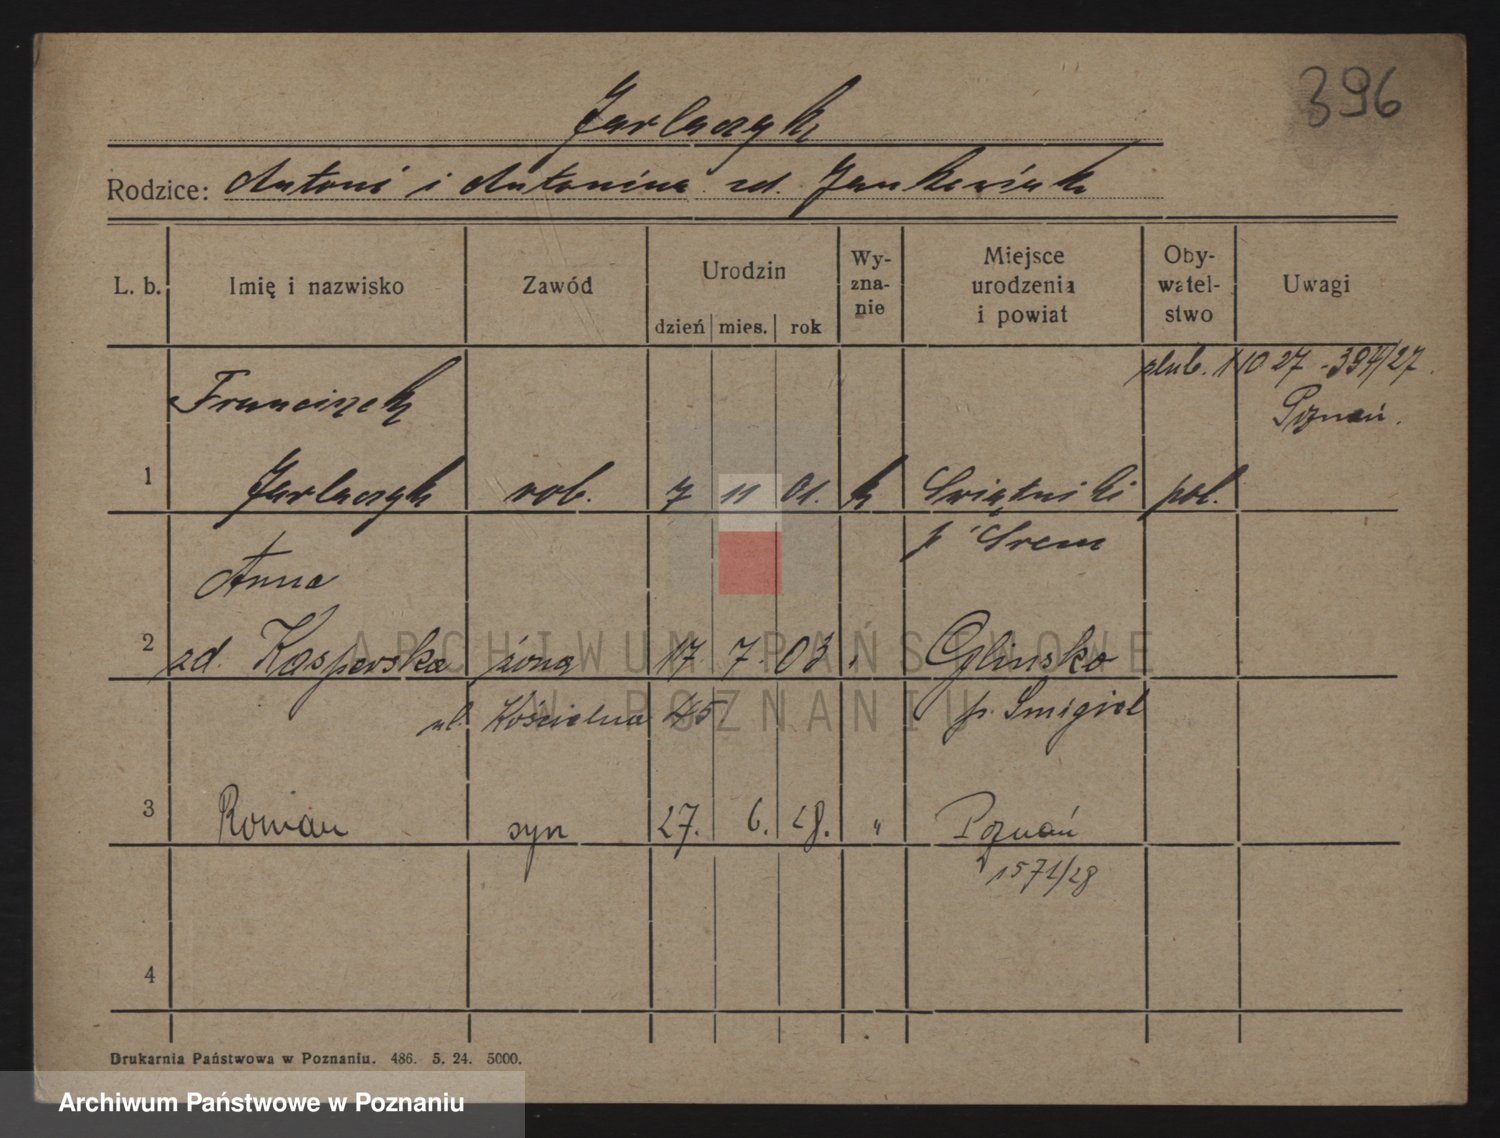 396
Jarlaczyk
Rodzice: Antoni i Antonina zd. Jankowiak
L. b. Imię i nazwisko Zawód Urodzin dzień mies. rok Wy-zna-nie Miejsce urodzenia i powiat Oby-watel-stwo Uwagi
ślub. 1 10 27 - 394/27
Franciszek Poznań.
1 Jarlaczyk rob. 7 11 01. k Świątniki pol.
p Śrem
Anna
2 zd. Kasperska żona 17 7. 03 Glinsko
ul. Kościelna 45 p. Śmigiel
3 Roman syn 27. 6. 28. " Poznań
1571/28
4
Drukarnia Państwowa w Poznaniu. 486. 5. 24. 5000.
ARCHIWUM PAŃSTWOWE
W POZNANIU
Archiwum Państwowe w Poznaniu